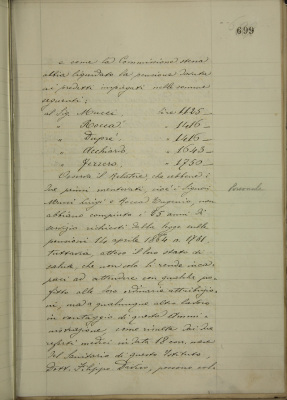 699
e come la Commissione stessa
abbia liquidato la pensione dovuta
ai predetti impiegati nelle somme
seguenti:
al Sig. Mucci Lire 1125 —
" Rocca " 1416 —
" Duprè " 1416 —
" " 1643 —
" " 1750 —
Osserva il Relatore, che sebbene i
due primi menzionati, cioè i Signori
Mucci Luigi e Rocca Eugenio, non
abbiano compiuto i 65 anni di
servizio richiesti dalla legge sulle
pensioni 14 aprile 1864 n 1731,
tuttavia, atteso il loro stato di
salute, che non solo li rende incapaci
ad attendere con qualche profitto
alle loro ordinarie attribuzioni,
ma a qualunque altro lavoro
in vantaggio di questa Amministrazione,
come risulta dai due
referti medici in data 18 corr. mese
del Sanitario di questo Istituto,
Dott. Filippo, possono
Personale